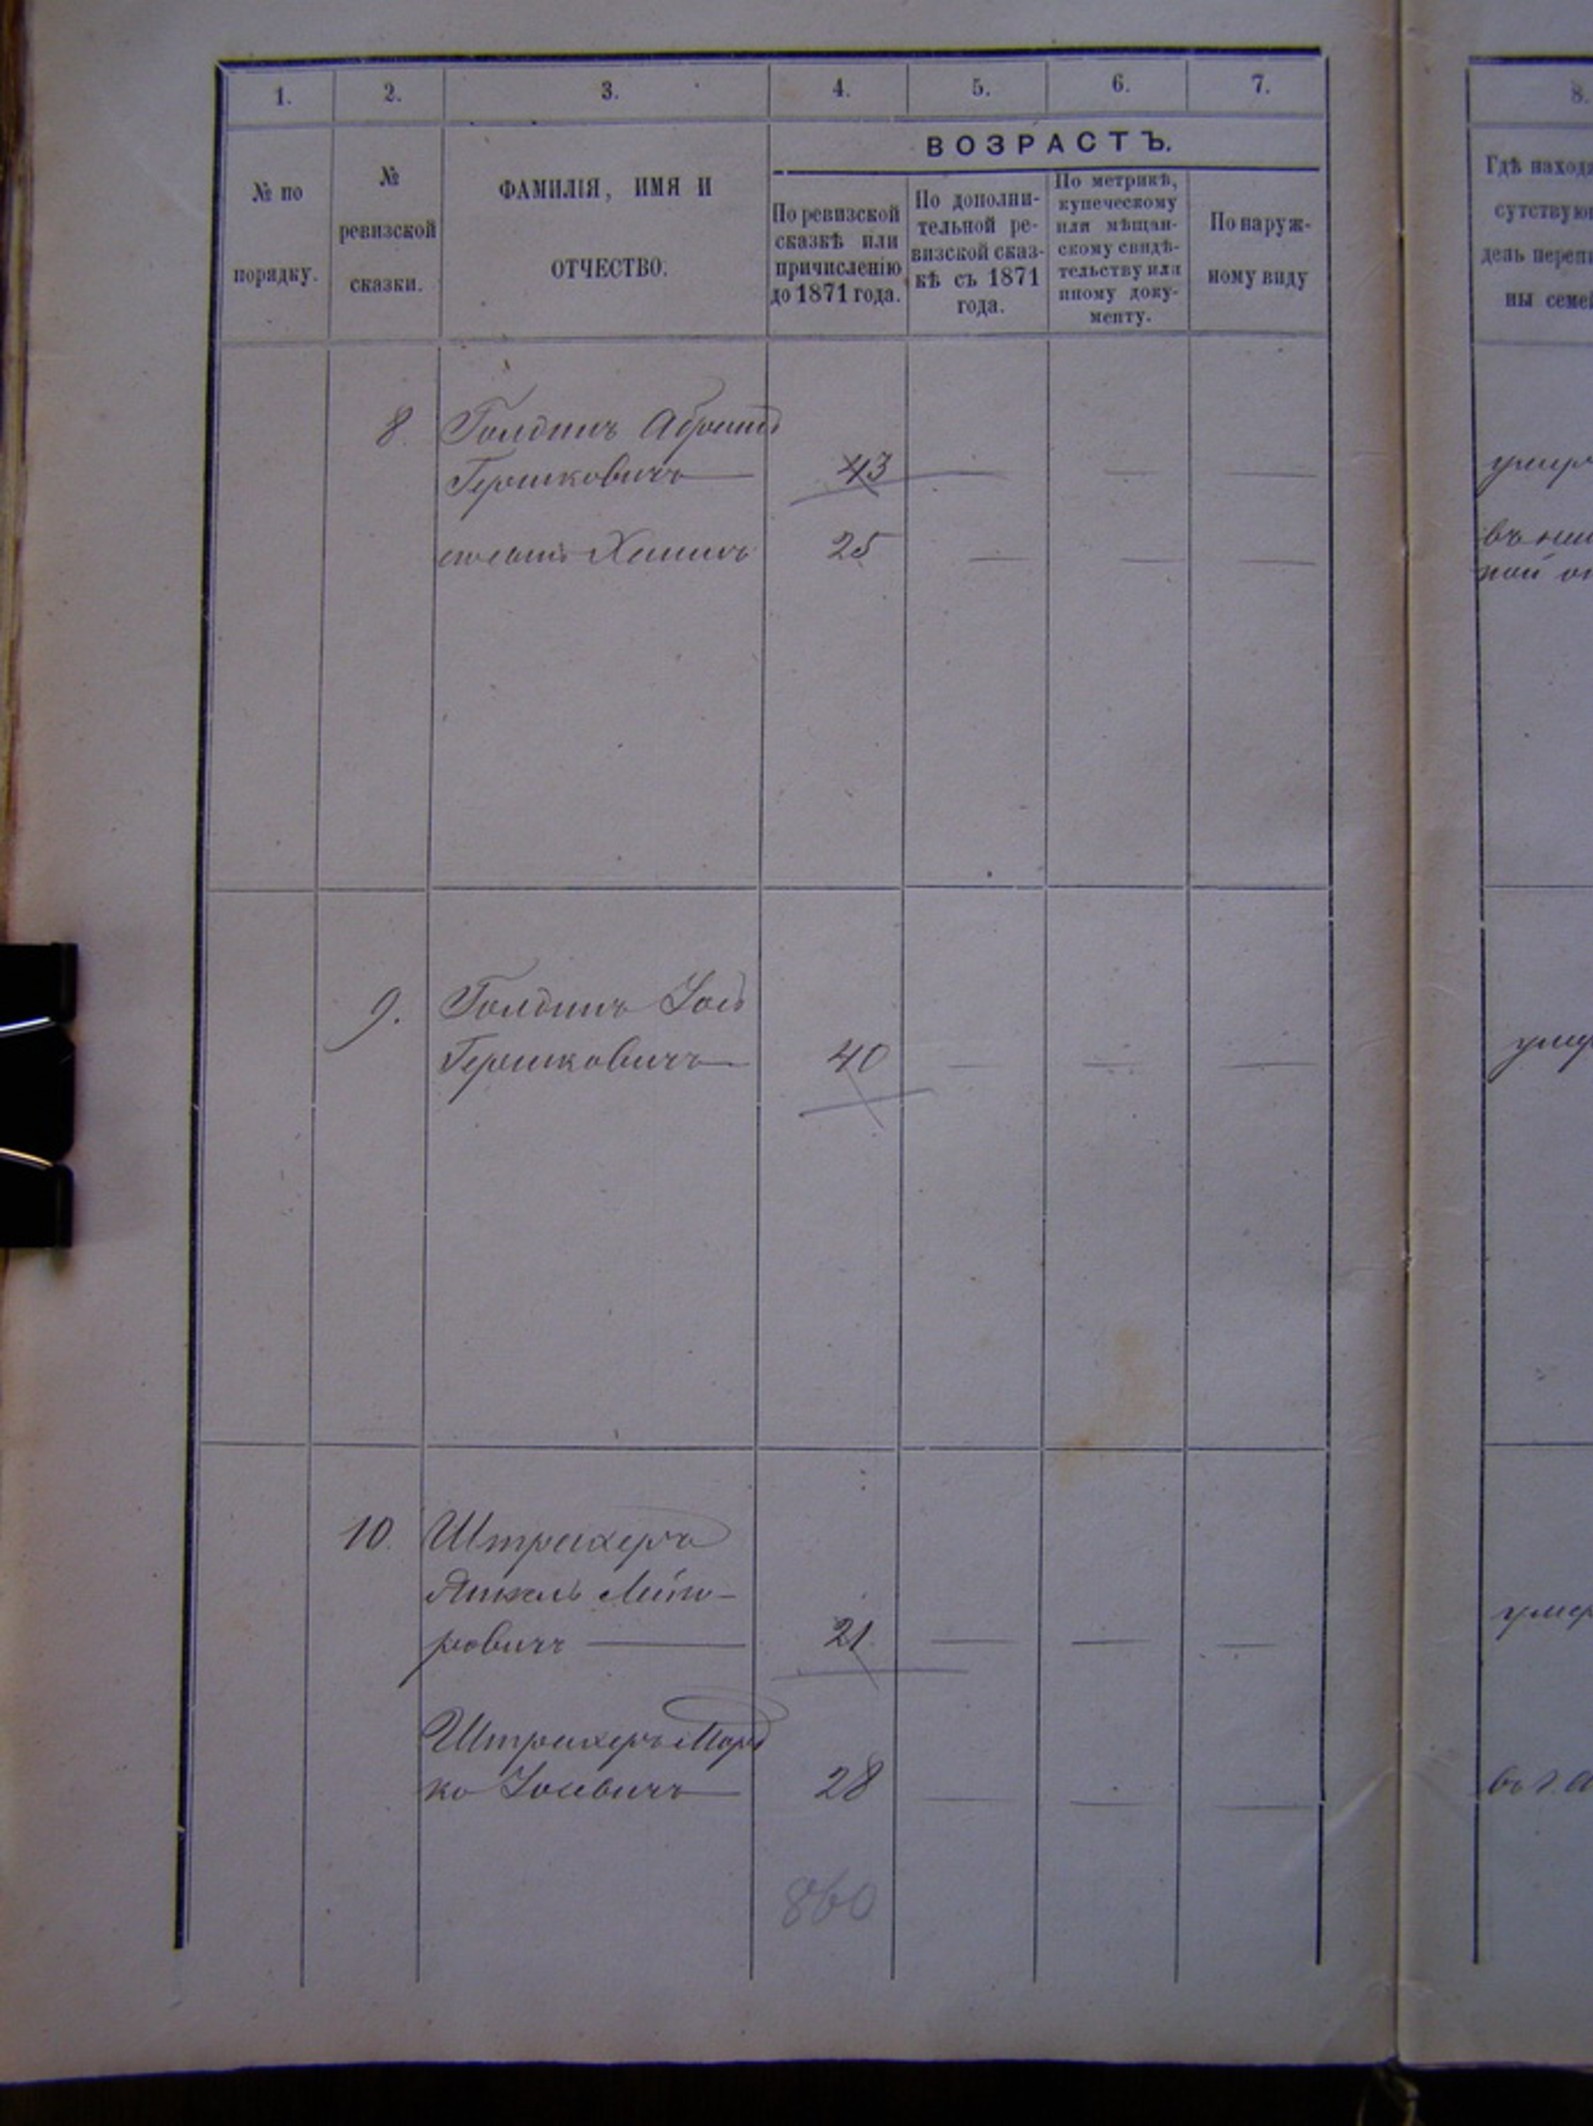 1. 2. 3. 4. 5. 6. 7. 8.
ВОЗРАСТЪ.
№ по
порядку.
№
ревизской
сказки.
ФАМИЛІЯ, ИМЯ И
ОТЧЕСТВО.
По ревизской
сказкѣ или
причисленію
до 1871 года.
По дополни-
тельной ре-
визской сказ-
кѣ съ 1871
года.
По метрикѣ,
купеческому
или мѣщан-
скому свидѣ-
тельству или
иному доку-
менту.
По наруж-
ному виду
Гдѣ находя
сутствую
день переп
ны семе
8. Голдинъ Абрамъ
Гершковичъ — 43 — — — умер
25 — — —
въ
ной
9. Голдинъ
Гершковичъ — 40 — — — умер
10. Штрахеръ
Янкель
ровичъ — 21 — — — умер
Штрахеръ Морд
ко — 28 — — — въ г.
860